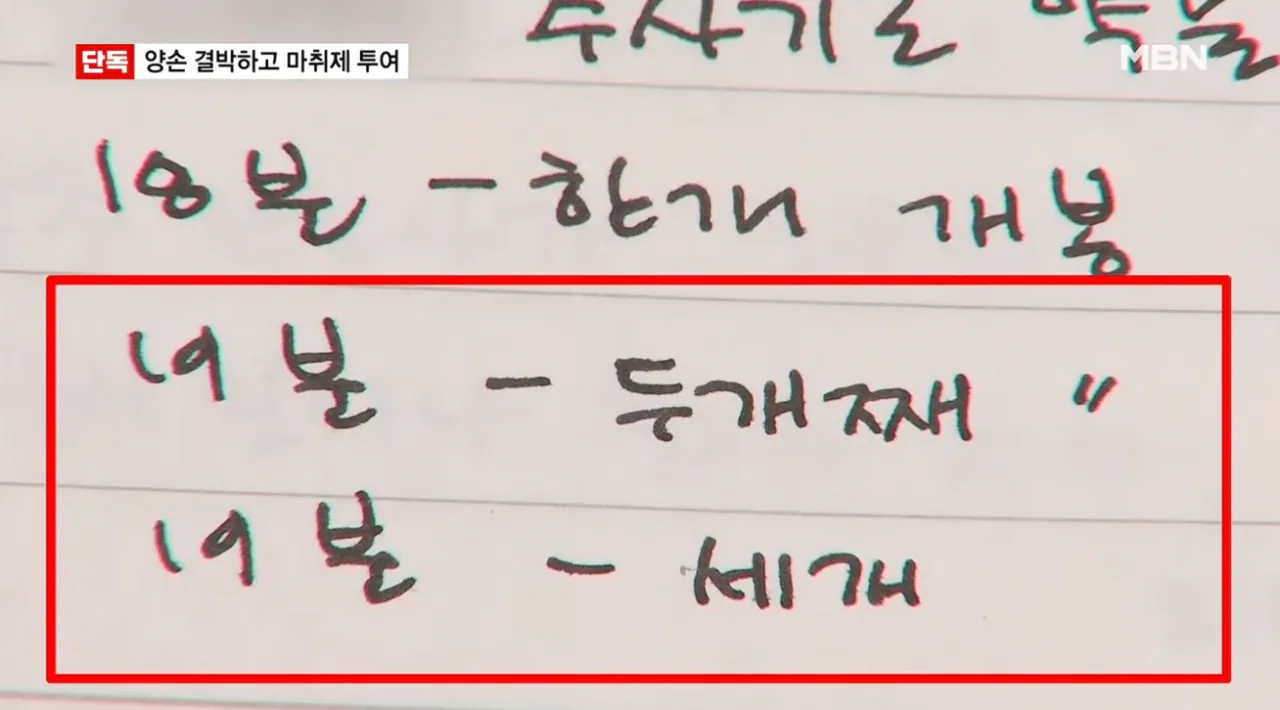 단독 양손 결박하고 마취제 투여
MBN
18분 - 한개 개봉
19분 - 두개째 〃
19분 - 세개